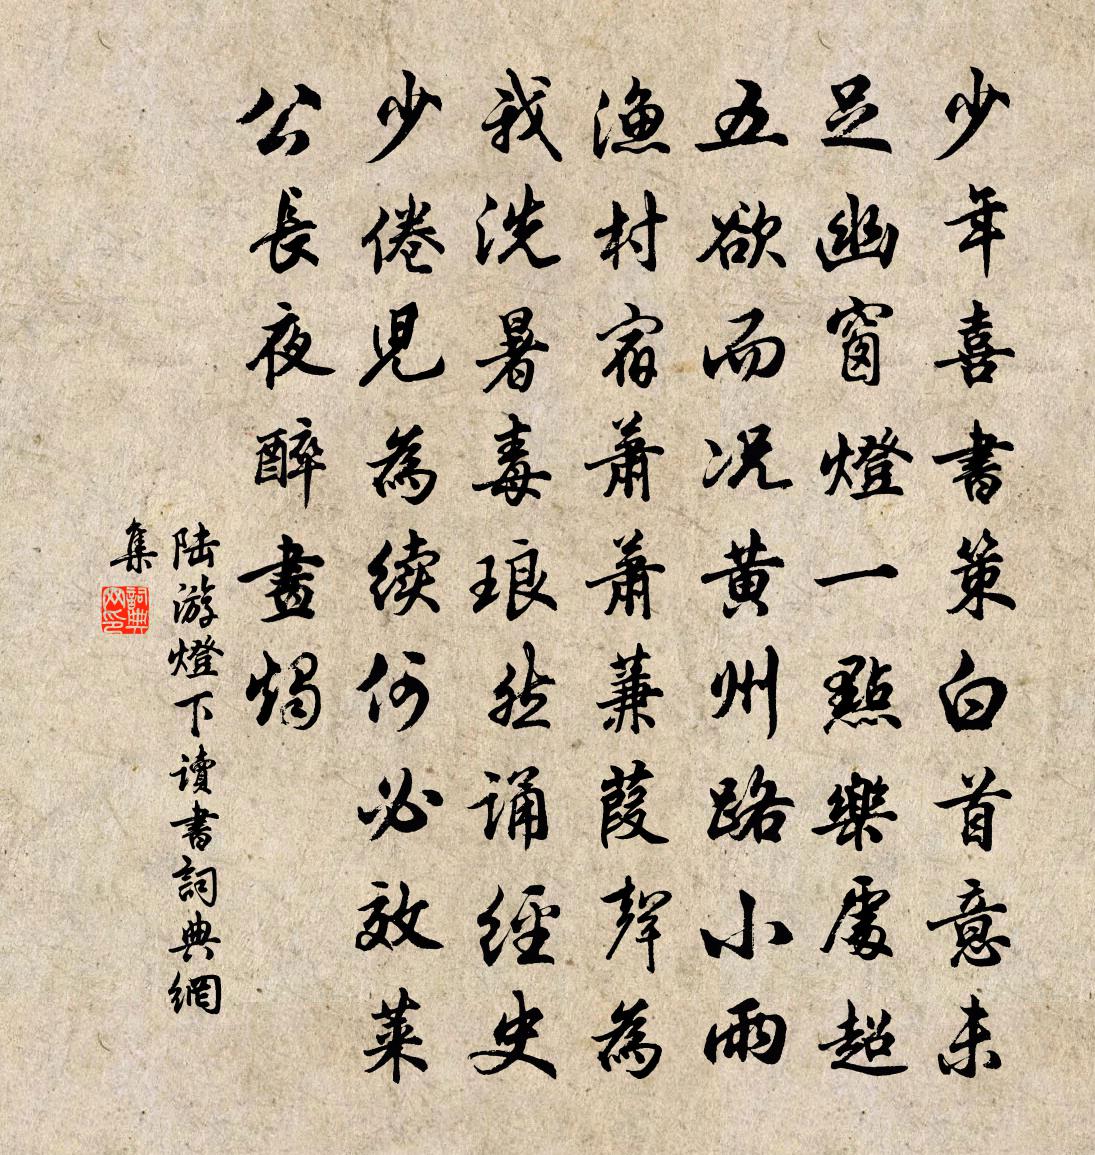 少年喜書策白首意未
足幽窗燈一點樂處超
五欲而况黄州路小雨
漁村宿蕭蕭蒹葭聲為
我洗暑毒琅然誦經史
少倦兒為續何必效萊
公長夜醉畫燭
陆游燈下讀書詞典網
集
詞典
网印